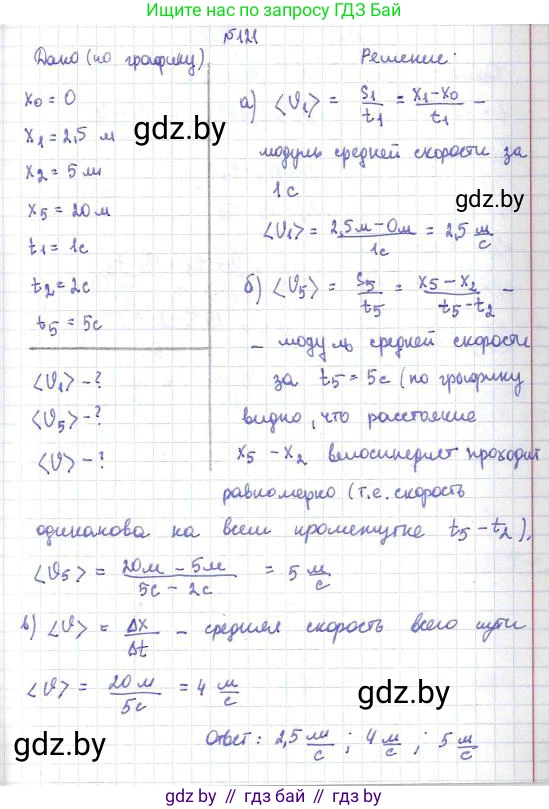 Ищите нас по запросу ГДЗ Бай
№121
Дано (по графику)
x₀ = 0
x₁ = 2,5 м
x₂ = 5 м
x₅ = 20 м
t₁ = 1с
t₂ = 2с
t₅ = 5с
<υ₁> - ?
<υ₅> - ?
<υ> - ?
Решение:
а) <υ₁> = s₁/t₁ = (x₁-x₀)/t₁ -
модуль средней скорости за
1с
<υ₁> = (2,5м - 0м)/1с = 2,5 м/с
б) <υ₅> = s₅/t₅ = (x₅-x₂)/(t₅-t₂) -
- модуль средней скорости
за t₅ = 5с (по графику
видно, что расстояние
x₅ - x₂ велосипедист проходит
равномерно (т.е. скорость
одинакова на всем промежутке t₅ - t₂).
<υ₅> = (20м - 5м)/(5с - 2с) = 5 м/с
в) <υ> = Δx/Δt - средняя скорость всего пути
<υ> = 20м/5с = 4 м/с
Ответ: 2,5 м/с ; 4 м/с ; 5 м/с
gdz.by
gdz.by
gdz.by
gdz.by
gdz.by // гдз бай // gdz by